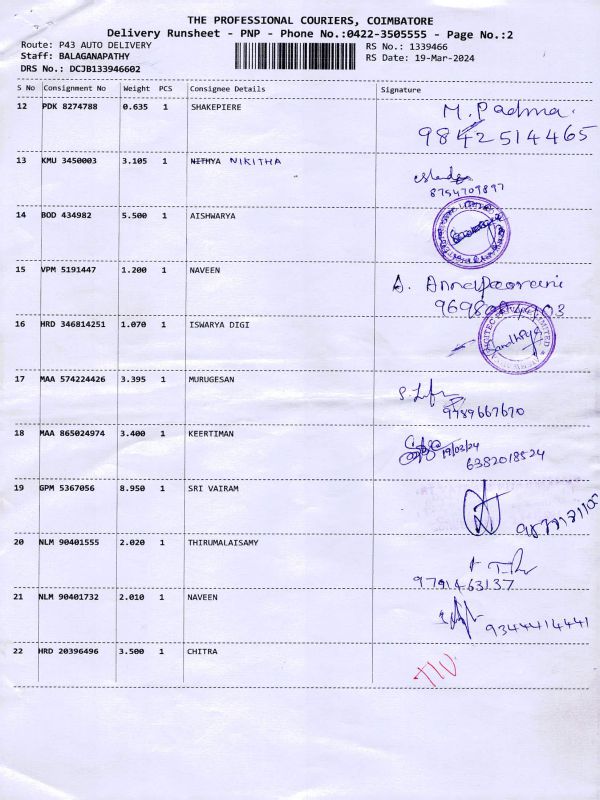 THE PROFESSIONAL COURIERS, COIMBATORE
Delivery Runsheet - PNP - Phone No.:0422-3505555 - Page No.:2
Route: P43 AUTO DELIVERY
Staff: BALAGANAPATHY
DRS No.: DCJB133946602
RS No.: 1339466
RS Date: 19-Mar-2024
S No Consignment No Weight PCS Consignee Details Signature
12 PDK 8274788 0.635 1 SHAKEPIERE M. Padma.
9842514465
13 KMU 3450003 3.105 1 NITHYA NIKITHA
8754709897
14 BOD 434982 5.500 1 AISHWARYA
15 VPM 5191447 1.200 1 NAVEEN A. Annapoorani
16 HRD 346814251 1.070 1 ISWARYA DIGI Sandhiya
17 MAA 574224426 3.395 1 MURUGESAN
9789667670
18 MAA 865024974 3.400 1 KEERTIMAN 19/03/24
6382018524
19 GPM 5367056 8.950 1 SRI VAIRAM
20 NLM 90401555 2.020 1 THIRUMALAISAMY
9791463137
21 NLM 90401732 2.010 1 NAVEEN
9344414441
22 HRD 20396496 3.500 1 CHITRA